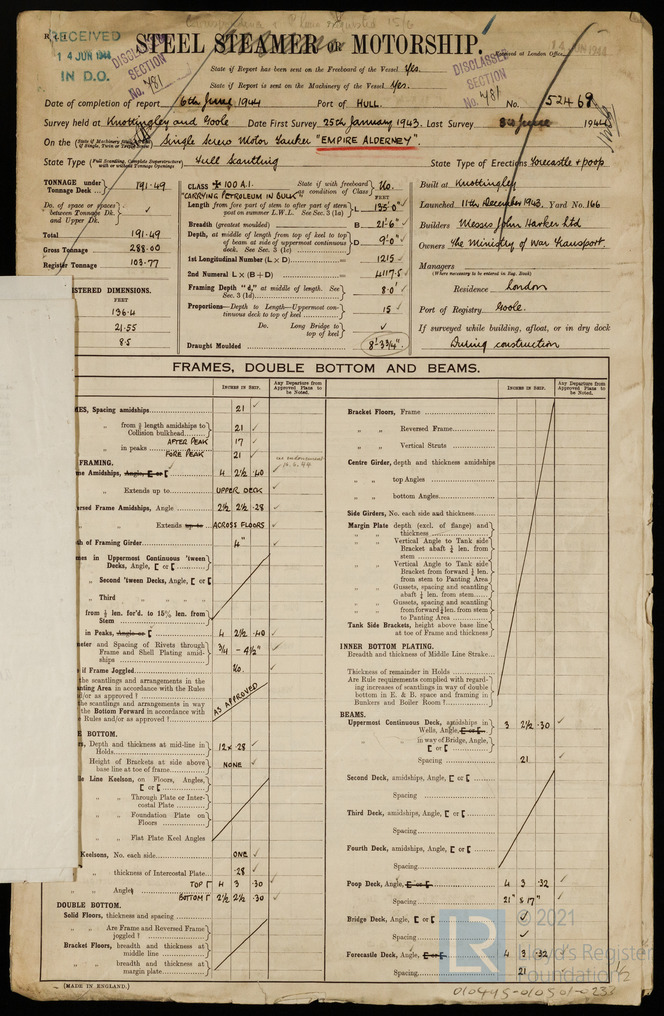 RECEIVED
14 JUN 1944
IN D.O.
DISCLASSED
SECTION
No. 781
STEEL STEAMER OR MOTORSHIP.
Received at London Office
14 JUN 1944
State if Report has been sent on the Freeboard of the Vessel Yes.
State if Report is sent on the Machinery of the Vessel Yes.
DISCLASSED
SECTION
No. 781
Date of completion of report 6th June, 1944 Port of HULL. No. 52469
Survey held at Knottingley and Goole Date First Survey 25th January 1943. Last Survey 3rd June 1944
On the (State if Machinery Aft, and if Single, Twin or Triple Screw) Single Screw Motor Tanker "EMPIRE ALDERNEY"
State Type (Full Scantling, Complete Superstructure with or without Tonnage Openings) Full Scantling State Type of Erections Forecastle & poop
TONNAGE under Tonnage Deck 191.49
Do. of space or spaces between Tonnage Dk. and Upper Dk. ✓
Total 191.49
Gross Tonnage 288.00
Register Tonnage 103.77
ISTERED DIMENSIONS.
FEET
136.4
21.55
8.5
CLASS ✠ 100 A.1. State if with freeboard as condition of Class No.
"CARRYING PETROLEUM IN BULK"
FEET
Length from fore part of stem to after part of stern post on summer L.W.L. See Sec. 3 (1a) L 135'-0" ✓
Breadth (greatest moulded) B 21'-6" ✓
Depth, at middle of length from top of keel to top of beam at side of uppermost continuous deck. See Sec. 3 (1c) D 9'-0" ✓
1st Longitudinal Number (L × D) 1215 ✓
2nd Numeral L × (B + D) 4117.5 ✓
Framing Depth "d," at middle of length. See Sec. 3 (1d) 8.0' ✓
Proportions—Depth to Length—Uppermost continuous deck to top of keel 15 ✓
Do. Long Bridge to top of keel ✓
Draught Moulded 8'-3¾"
Built at Knottingley
Launched 11th December 1943. Yard No. 166
Builders Messrs John Harker Ltd
Owners The Ministry of War Transport.
Managers
(Where necessary to be entered in Reg. Book)
Residence London
Port of Registry Goole.
If surveyed while building, afloat, or in dry dock
During construction
FRAMES, DOUBLE BOTTOM AND BEAMS.
INCHES IN SHIP.
Any Departure from Approved Plans to be Noted.
MES, Spacing amidships 21 ✓
" from ¾ length amidships to Collision bulkhead 21 ✓
" in peaks AFTER PEAK 17 ✓
FORE PEAK 21 ✓
FRAMING.
me Amidships, Angle, [ or [ 4 2½ .40 ✓
" Extends up to UPPER DECK ✓
ersed Frame Amidships, Angle 2½ 2½ .28 ✓
" Extends up to ACROSS FLOORS ✓
th of Framing Girder 4" ✓
mes in Uppermost Continuous 'tween Decks, Angle, [ or [
" Second 'tween Decks, Angle, [ or [
" Third " " " "
from ¾ len. for'd. to 15% len. from Stem
in Peaks, Angle or [ 4 2½ .40 ✓
meter and Spacing of Rivets through Frame and Shell Plating amidships ¾ – 4½" ✓
if Frame Joggled No. ✓
the scantlings and arrangements in the nting Area in accordance with the Rules d/or as approved?
the scantlings and arrangements in way the Bottom Forward in accordance with Rules and/or as approved?
AS APPROVED
E BOTTOM.
s, Depth and thickness at mid-line in Holds 12 × .28 ✓
Height of Brackets at side above base line at toe of frame NONE ✓
le Line Keelson, on Floors, Angles, [ or [
" " Through Plate or Intercostal Plate
" " Foundation Plate on Floors
" " Flat Plate Keel Angles
Keelsons, No. each side ONE ✓
" thickness of Intercostal Plate .28 ✓
TOP 4 3 .30
" Angles BOTTOM 2½ 2½ .30 ✓
DOUBLE BOTTOM.
Solid Floors, thickness and spacing
" " Are Frame and Reversed Frame joggled?
Bracket Floors, breadth and thickness at middle line
" " breadth and thickness at margin plate
(MADE IN ENGLAND.)
INCHES IN SHIP.
Any Departure from Approved Plans to be Noted.
Bracket Floors, Frame
" " Reversed Frame
" " Vertical Struts
Centre Girder, depth and thickness amidships
" " top Angles
" " bottom Angles
Side Girders, No. each side and thickness
Margin Plate depth (excl. of flange) and thickness
" " Vertical Angle to Tank side Bracket abaft ¼ len. from stem
" " Vertical Angle to Tank side Bracket from forward ¼ len. from stem to Panting Area
" " Gussets, spacing and scantling abaft ¼ len. from stem
" " Gussets, spacing and scantling from forward ¼ len. from stem to Panting Area
Tank Side Brackets, height above base line at toe of Frame and thickness
INNER BOTTOM PLATING.
Breadth and thickness of Middle Line Strake
Thickness of remainder in Holds
Are Rule requirements complied with regarding increases of scantlings in way of double bottom in E. & B. space and framing in Bunkers and Boiler Room?
BEAMS.
Uppermost Continuous Deck, amidships in Wells, Angle, [ or [ 3 2½ .30 ✓
" " in way of Bridge, Angle, [ or [
Spacing 21 ✓
Second Deck, amidships, Angle, [ or [
Spacing
Third Deck, amidships, Angle, [ or [
Spacing
Fourth Deck, amidships, Angle, [ or [
Spacing
Poop Deck, Angle, [ or [ 4 3 .32 ✓
Spacing 21" & 17" ✓
Bridge Deck, Angle, [ or [ ✓
Spacing ✓
Forecastle Deck, Angle, [ or [ 4 3 .32
Spacing 21
LR
© 2021
Lloyd's Register
Foundation
010445-010501-0231/2